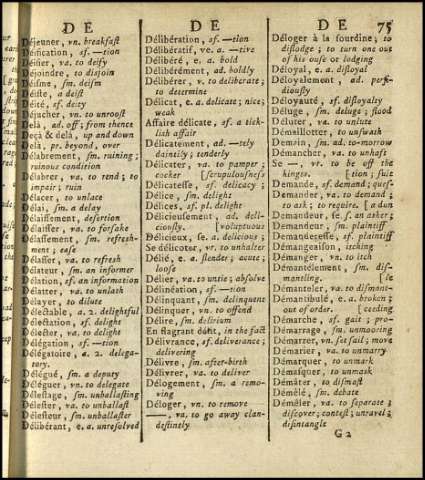 D E
D E
D E 75
Déjeuner, vn. breakfast
Déification, sf. —tion
Déifier, va. to deify
Déjoindre, to disjoin
Déisme, sm. deism
Déiste, a deist
Déité, sf. deity
Déjucher, vn. to unroost
Delà, ad. off; from thence
Deçà & delà, up and down
Delà, pr. beyond, over
Délabrement, sm. ruining;
ruinous condition
Délabrer, va. to rend; to
impair; ruin
Délacer, to unlace
Délai, sm. a delay
Délaissement, desertion
Délaisser, va. to forsake
Délassement, sm. refresh-
ment; ease
Délasser, va. to refresh
Délateur, sm. an informer
Délation, sf. an information
Délatter, va. to unlath
Délayer, to dilute
Délectable, a. 2. delightful
Délectation, sf. delight
Délecter, va. to delight
Délégation, sf. —tion
Délégatoire, a. 2. delega-
tory.
Délégué, sm. a deputy
Déléguer, vn. to delegate
Délestage, sm. unballasting
Délester, va. to unballast
Délesteur, sm. unballaster
Délibérant, e. a. unresolved
Délibération, sf. —tion
Délibératif, ve. a. —tive
Délibéré, e. a. bold
Délibérément, ad. boldly
Délibérer, v. to deliberate;
to determine
Délicat, e. a. delicate; nice;
weak
Affaire délicate, sf. a tick-
lish affair
Délicatement, ad. —tely
daintily; tenderly
Délicater, va. to pamper;
cocker [scrupulousness
Délicatesse, sf. delicacy;
Délice, sm. delight
Délices, sf. pl. delight
Délicieusement, ad. deli-
ciously. [voluptuous
Délicieux, se a. delicious;
Se délicoter, vr. to unhalter
Délié, e. a. slender; acute;
loose
Délier, va. to untie; absolve
Délinéation, sf. —tion
Délinquant, sm. delinquent
Délinquer, vn. to offend
Délire, sm. delirium
En flagrant délit, in the fact
Délivrance, sf. deliverance;
delivering
Délivre, sm. after-birth
Délivrer, va. to deliver
Délogement, sm. a remo-
ving
Déloger, vn. to remove
——, va. to go away clan-
destinely
Déloger à la sourdine; to
dislodge; to turn one out
of his ouse or lodging
Déloyal, e. a. disloyal
Déloyalement, ad. perfi-
diously
Déloyauté, sf. disloyalty
Déluge, sm. deluge; flood
Déluter, va. to unlute
Démaillotter, to unswath
Demain, sm. ad. to-morrow
Démancher, va. to unhaft
Se —, vr. to be off the
hinges. [tion; suit
Demande, sf. demand; ques-
Demander, va. to demand;
to ask; to require. [a dun
Demandeur, se s. an asker;
Demandeur, sm. plaintiff
Demanderesse, sf. plaintiff
Démangeaison, itching
Démanger, va. to itch
Démantélement, sm. dis-
mantling. [le
Démanteler, va. to dismant-
Démantibulé, e. a. broken;
out of order. [ceeding
Démarche, sf. gait; pro-
Démarrage, sm. unmooring
Démarrer, vn. set sail; move
Démarier, va. to unmarry
Démarquer, to unmark
Démasquer, to unmask
Démâter, to dismast
Démêlé, sm. debate
Démêler, va. to separate;
discover; contest; unravel;
disintangle
G 2